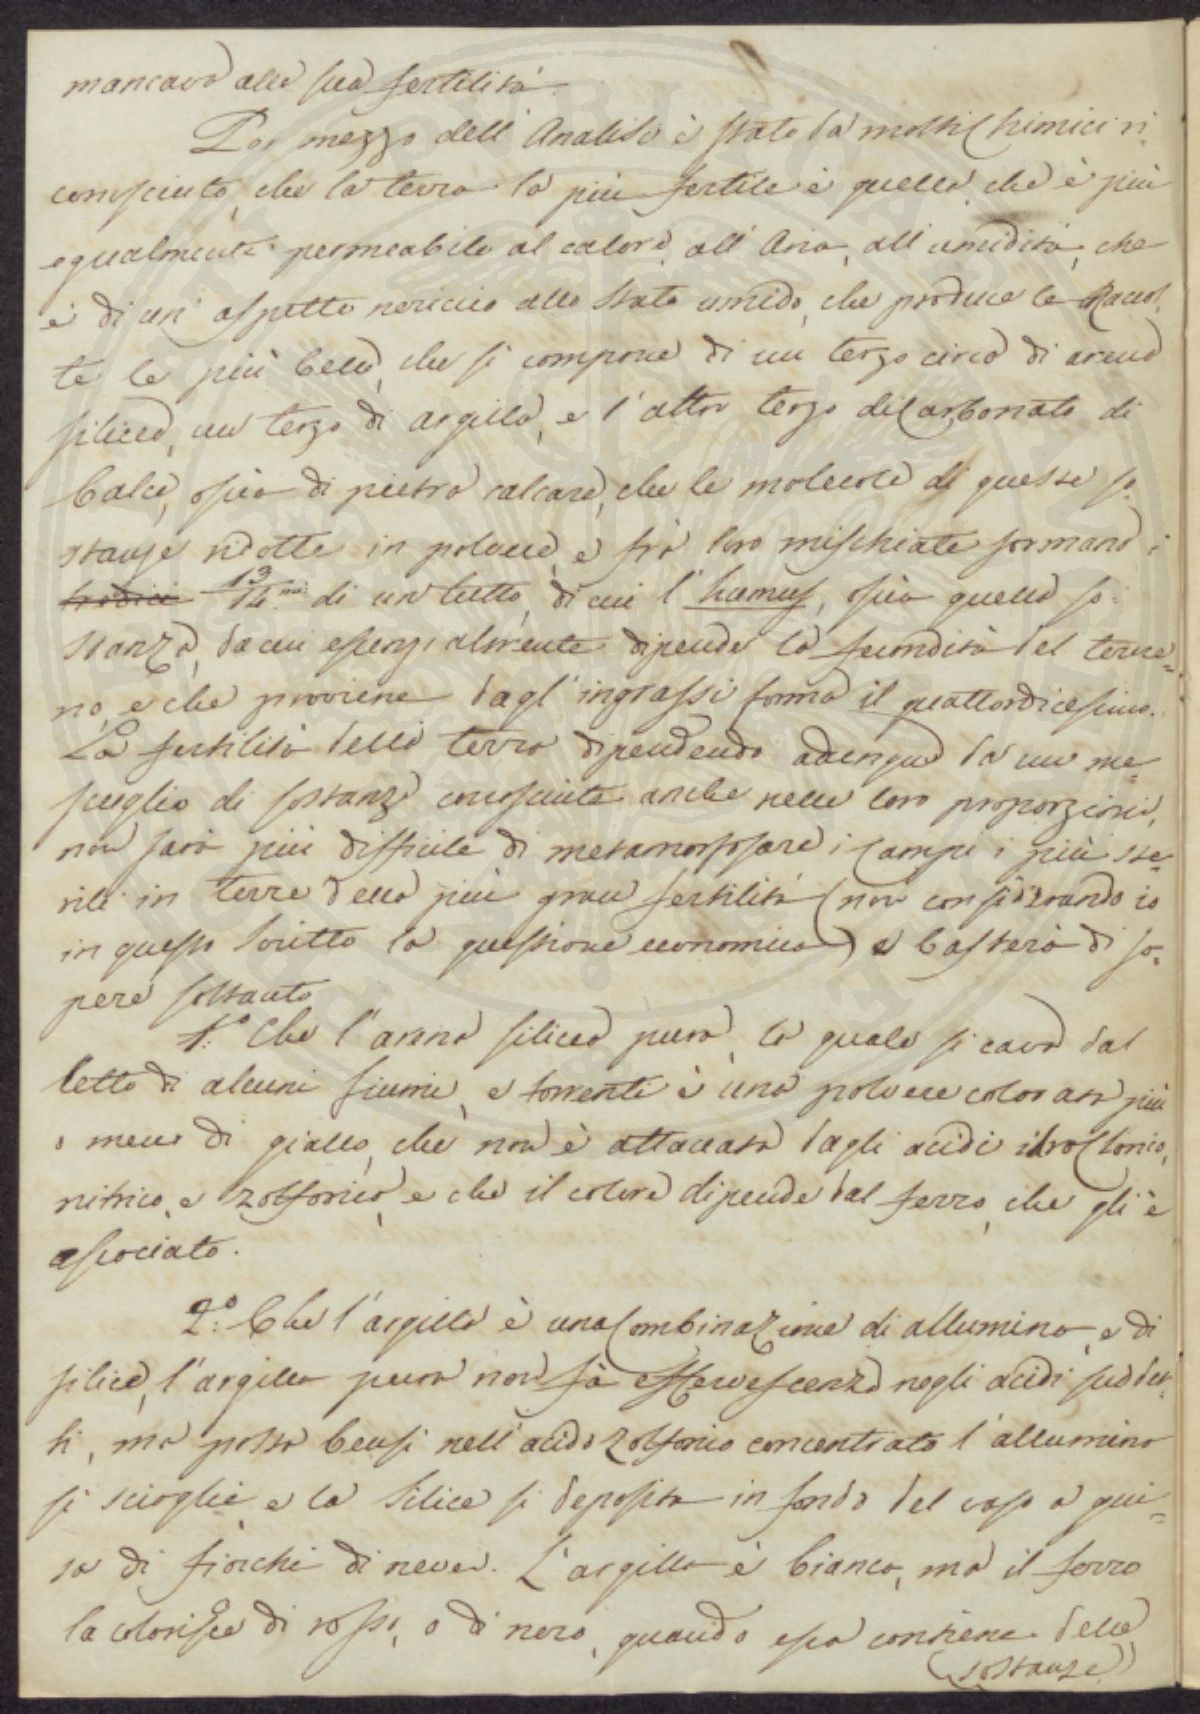 mancava alla sua fertilità.
Per mezzo dell'Analisi è stato da molti Chimici ri
conosciuto, che la terra la più fertile è quella, che è più
egualmente permeabile al calore, all'Aria, all'umidità, che
è di un'aspetto nericcio allo stato umido, che produce le Raccol,
te le più belle, che si compone di un terzo circa di arena
silicea, un terzo di argilla, e l'altro terzo di Carbonato di
Calce, ossia di pietra calcare, che le molecole di queste so
stanze ridotte in polvere, e frà loro mischiate formano i
tredici 13/14.mi di un tutto, di cui l'humus, ossia quella so:
stanza, da cui essenzialmente dipende la fecondità del terre=
no, e che proviene dagl'ingrassi forma il quattordicesimo.
La fertilità della terra dipendendo adunque da un me=
scuglio di sostanze conosciute anche nelle loro proporzioni,
non sarà più difficile di metamorfosare i Campi i più ste=
rili in terre della più gran fertilità (non considerando io
in questo scritto la questione economica) e basterà di sa=
pere soltanto
1.° Che l'arena silicea pura, la quale si cava dal
letto di alcuni fiumi, e torrenti è una polvere colorata più
o meno di giallo, che non è attaccata dagli acidi idroclorico,
nitrico, e zolforico, e che il colore dipende dal ferro, che gli è
associato.
2.° Che l'argilla è una Combinazione di allumina, e di
silice, l'argilla pura non fà effervescenza negli acidi suddet=
ti, ma posta bensi nell'acido zolforico concentrato l'allumina
si scioglie e la Silice si deposita in fondo del vaso a gui=
sa di fiocchi di neve. L'argilla è bianca, ma il ferro
la colorisce di rosso, o di nero, quando essa contiene delle
(sostanze)